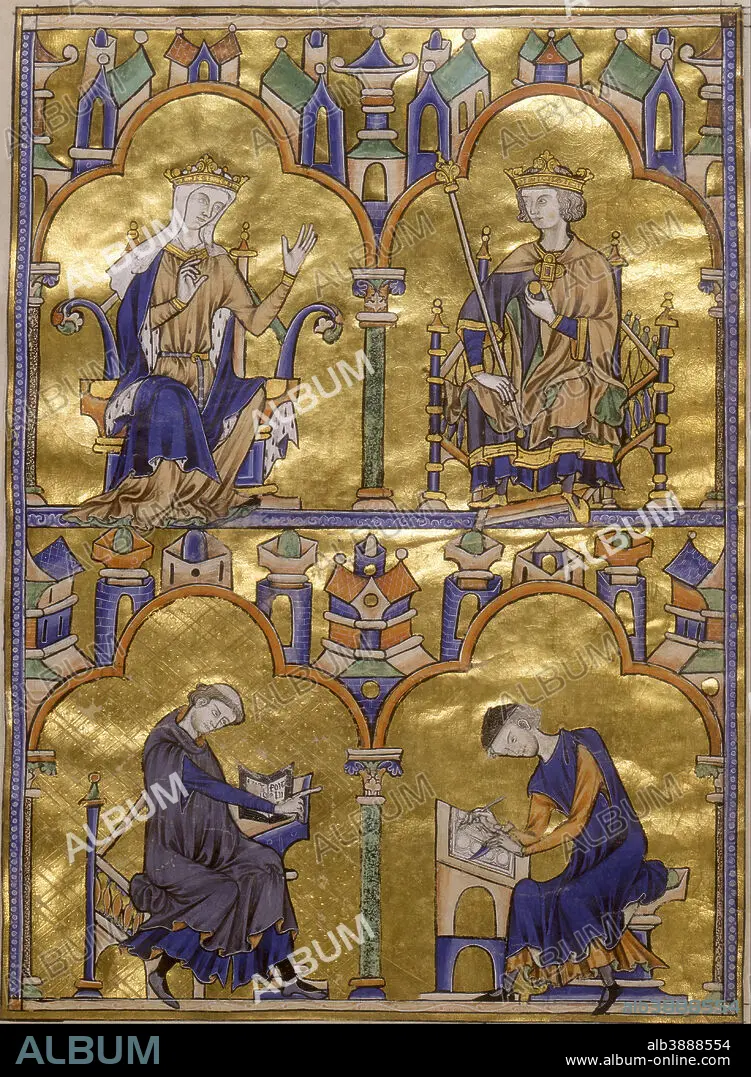 ALBUM
alb3888554
www.album-online.com